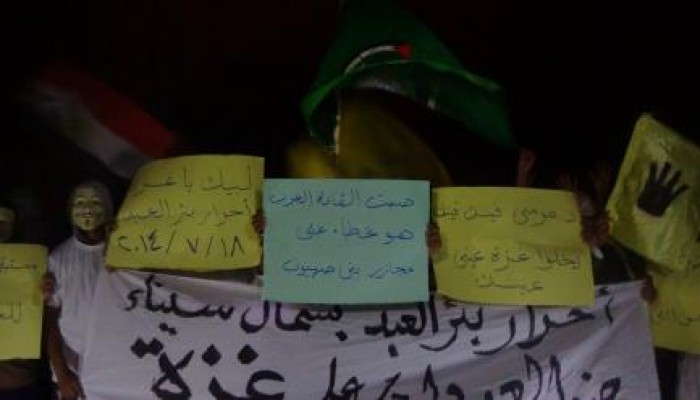 لبيك يا غزة
أحرار بئر العبد
٢٠١٤/٧/١٨
صمت القادة العرب
هو غطاء على
مجازر بني صهيون
د.مرسى فينك فينك
غزة
أحرار بئر العبد بشمال سيناء
العدوان على غزة